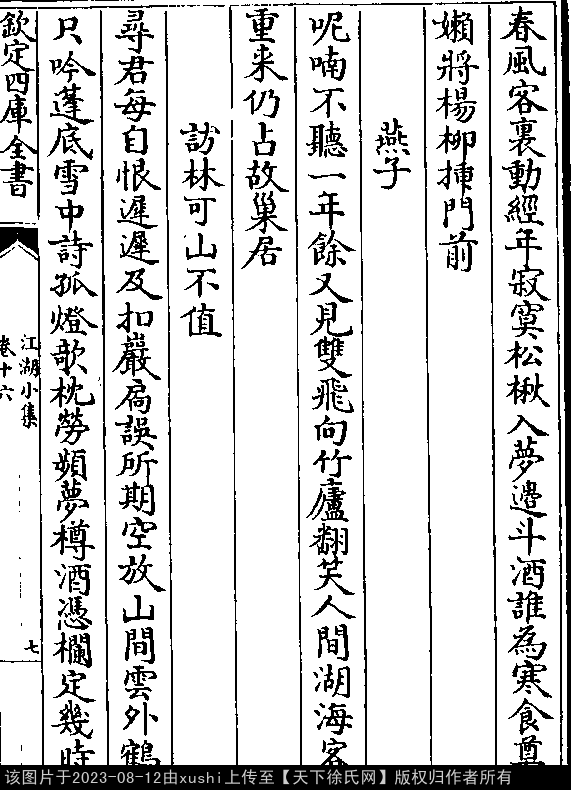 春風客裏動經年寂寞松楸入夢邉斗酒誰為寒食奠
嬾將楊柳揷門前
燕子
呢喃不聽一年餘又見雙飛向竹廬翻笑人間湖海客
重来仍占故巢居
訪林可山不值
尋君每自恨遲遲及扣巖扃誤所期空放山間雲外鶴
只吟蓬底雪中詩孤燈欹枕勞頻夢樽酒憑欄定幾時
欽定四庫全書
江湖小集
卷十六
七
该图片于2023-08-12由xushi上传至【天下徐氏网】版权归作者所有